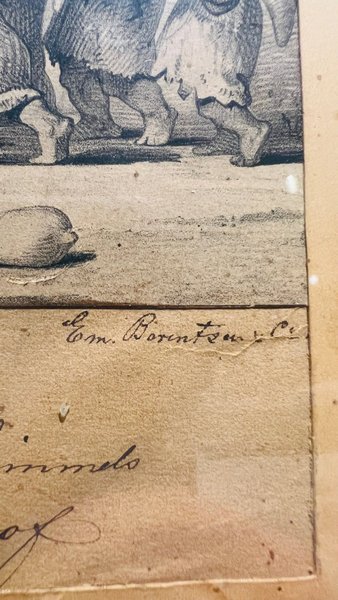 Em. Bærentzen & Co.
immels
of